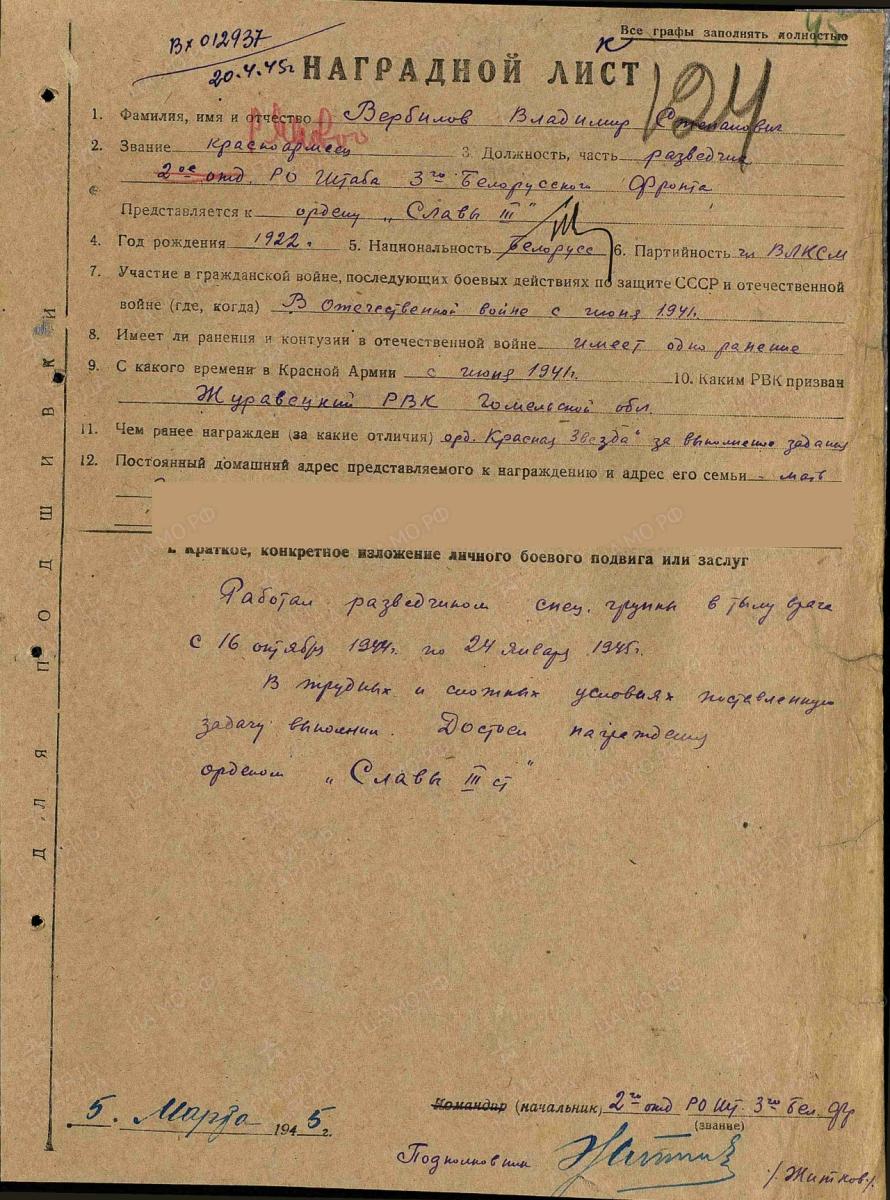 Все графы заполнять полностью
Вх 012937
20.4.45г
НАГРАДНОЙ ЛИСТ
124
1. Фамилия, имя и отчество Вербилов Владимир Степанович
2. Звание красноармеец 3. Должность, часть разведчик
2ое отд. РО Штаба 3го Белорусского Фронта
Представляется к ордену „Славы III"
4. Год рождения 1922. 5. Национальность Белорусс 6. Партийность чл ВЛКСМ
7. Участие в гражданской войне, последующих боевых действиях по защите СССР и отечественной
войне (где, когда) В Отечественной войне с июня 1941г.
8. Имеет ли ранения и контузии в отечественной войне имеет одно ранение
9. С какого времени в Красной Армии с июня 1941г. 10. Каким РВК призван
Журавецкий РВК Гомельской обл.
11. Чем ранее награжден (за какие отличия) орд. Красная Звезда" за выполнение задания
12. Постоянный домашний адрес представляемого к награждению и адрес его семьи - мать
I. Краткое, конкретное изложение личного боевого подвига или заслуг
Работал разведчиком спец. группы в тылу врага
с 16 октября 1944г. по 24 января 1945г.
В трудных и сложных условиях поставленную
задачу выполнил. Достоен награждения
орденом „Славы III ст"
ДЛЯ ПОДШИВКИ
Командир (начальник) 2го отд РО Шт. 3го Бел. Фр
(звание)
5. Марта 1945г.
Подполковник /Житков/.